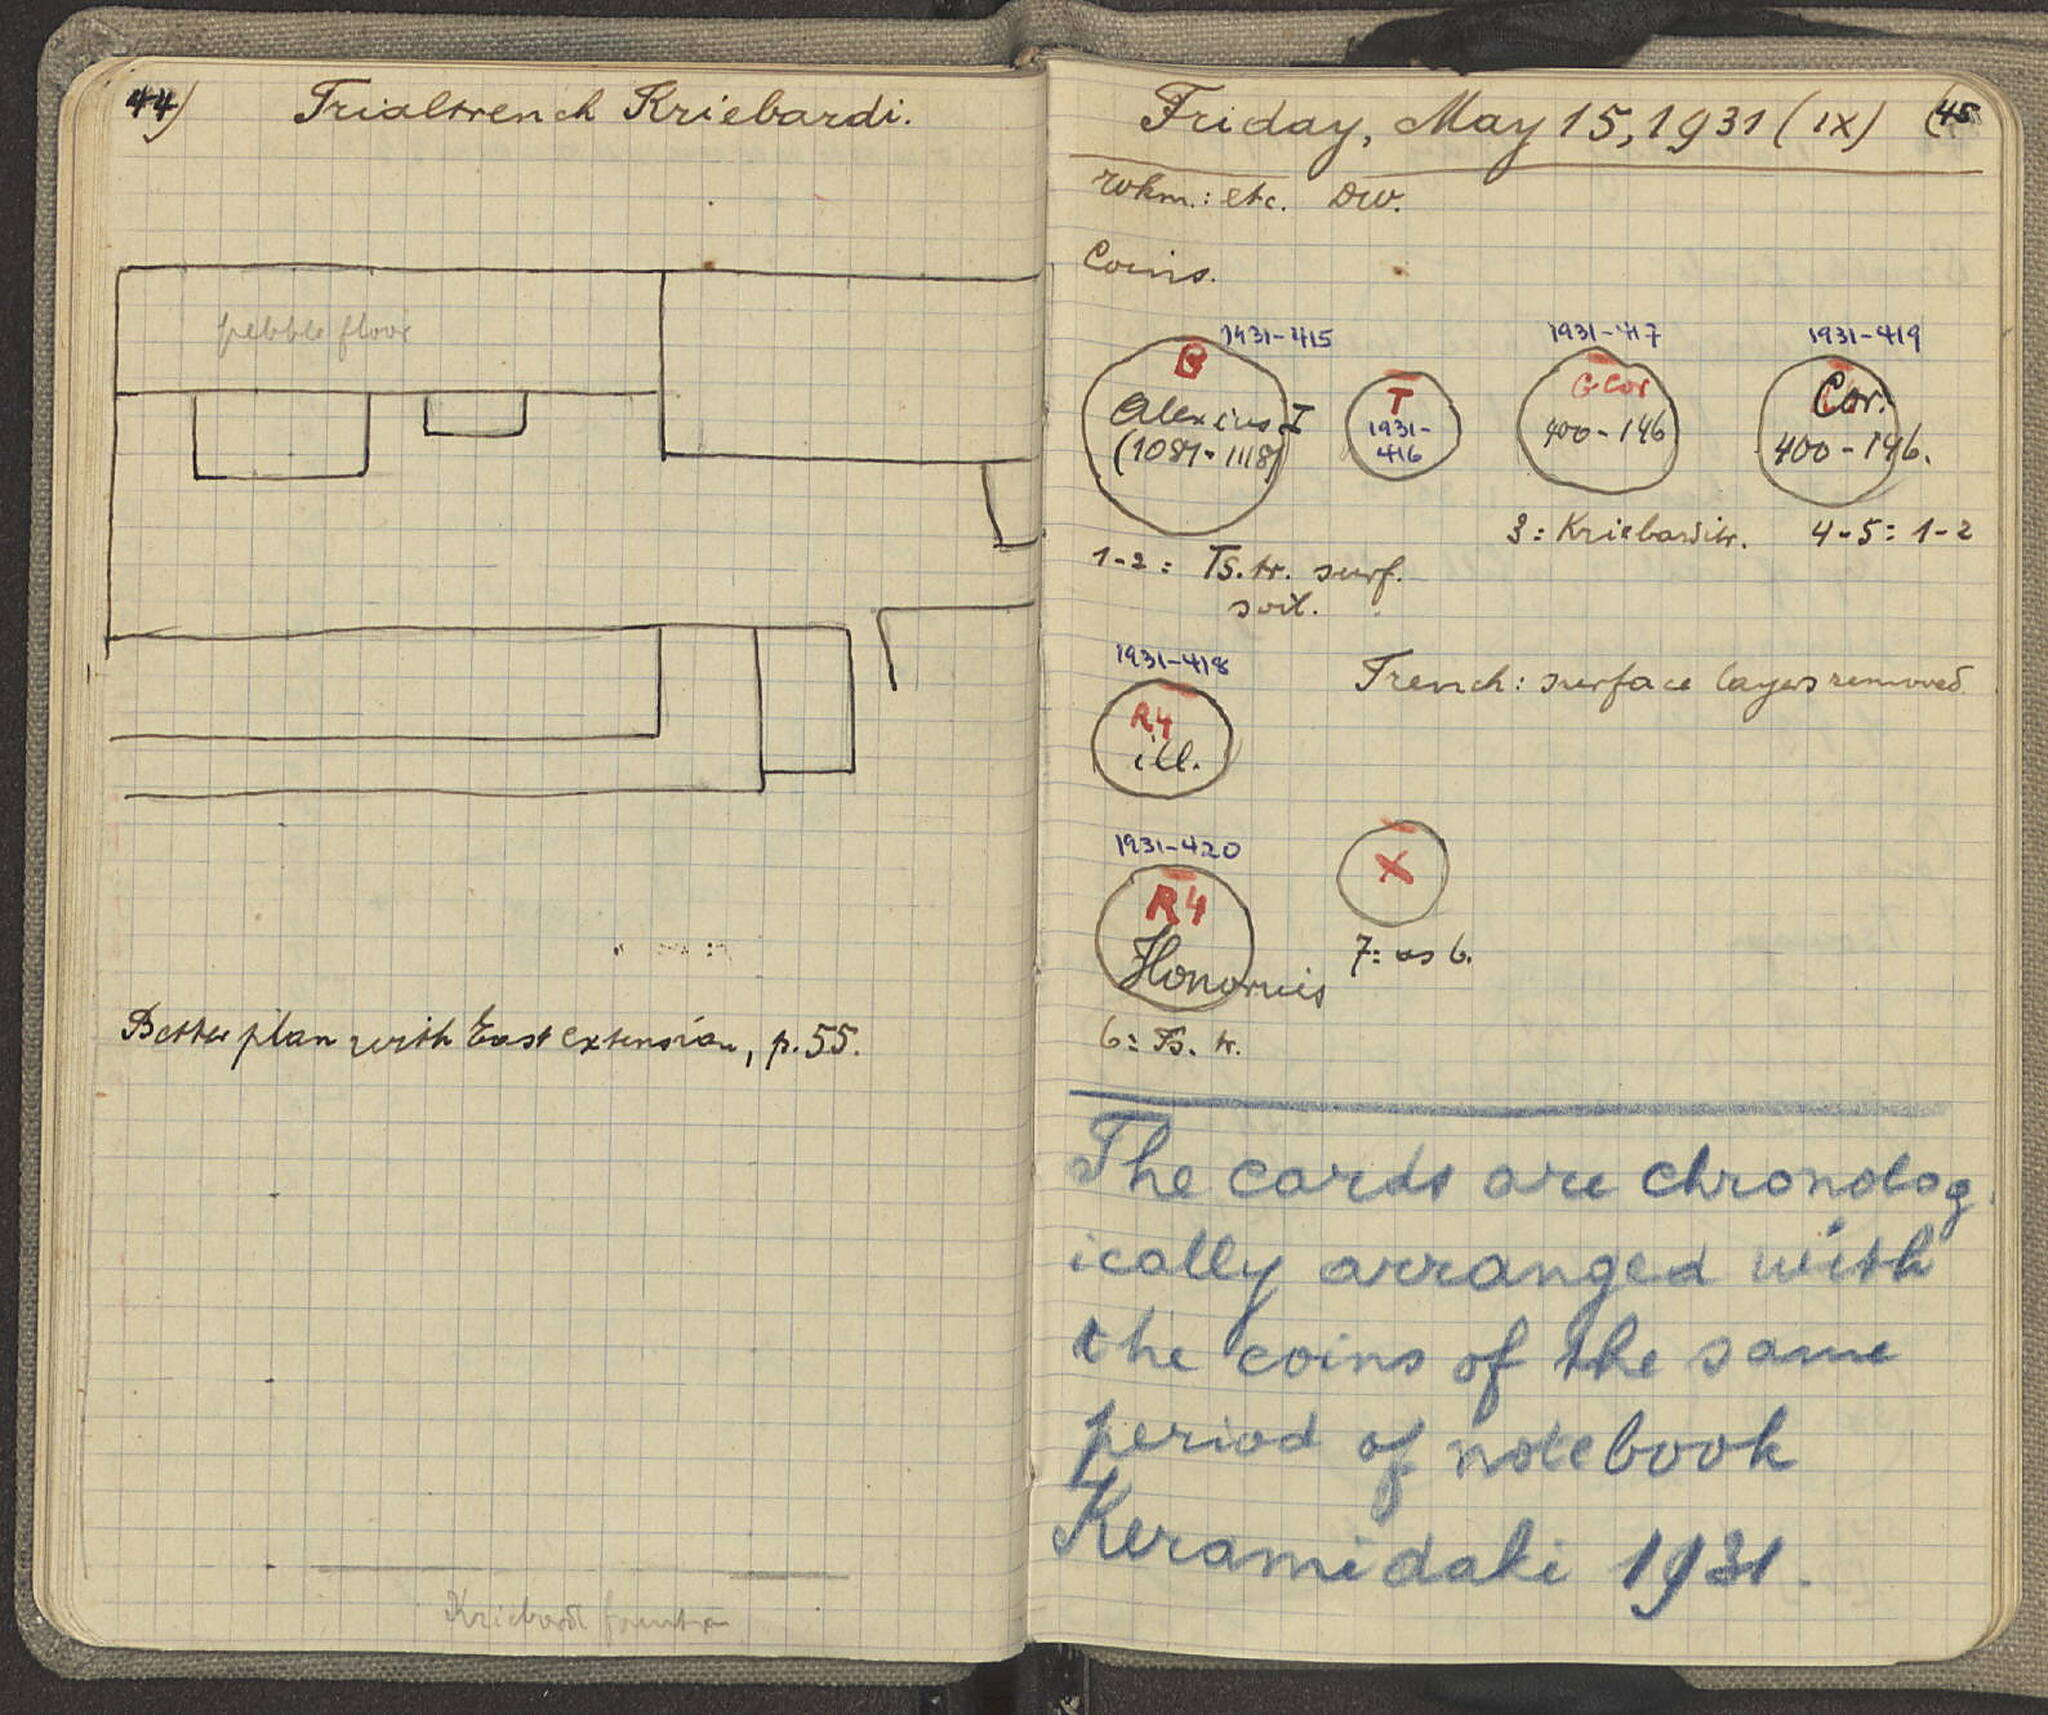 44)
Trialtrench Kriebardi.
pebble floor
Better plan with East extension, p. 55.
Friday, May 15, 1931 (IX) (45
wkm.: etc. DW.
Coins.
1931-415
B
Alexius I
(1081-1118)
T
1931-
416
1931-417
G Cor
400-146
1931-419
Cor.
400-146.
3: Kriebarditr. 4-5: 1-2
1-2: Ts. tr. surf.
soil.
1931-418
R4
ill.
Trench: surface layers removed
1931-420
R4
Honorius
X
7: as 6.
6: Ts. tr.
The cards are chronolog
ically arranged with
the coins of the same
period of notebook
Keramidaki 1931.